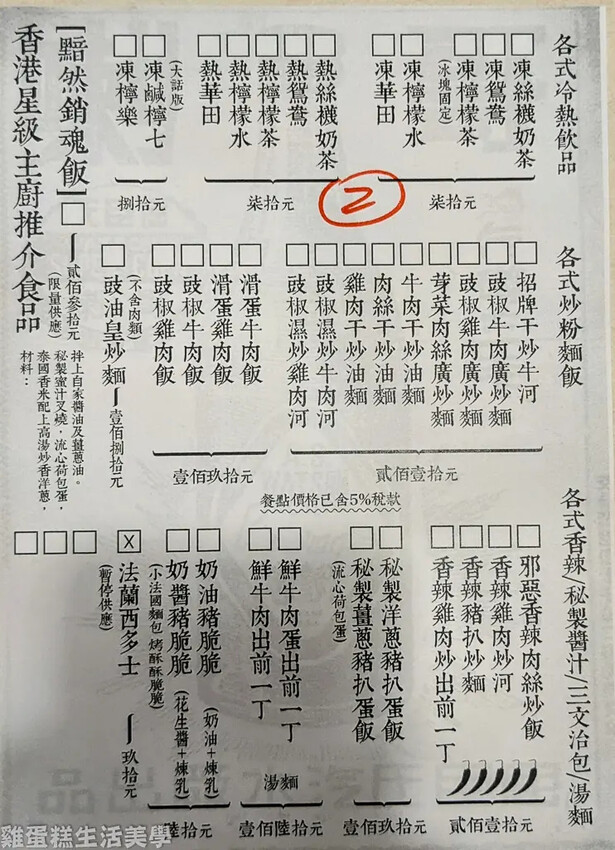 各式冷熱飲品
凍絲襪奶茶
凍鴛鴦
凍檸檬茶
(冰塊固定)
凍檸檬水
凍華田
柒拾元
熱絲襪奶茶
熱鴛鴦
熱檸檬茶
熱檸檬水
熱華田
柒拾元
凍鹹檸七
(大話版)
凍檸樂
捌拾元
2
各式炒粉麵飯
招牌干炒牛河
豉椒牛肉廣炒麵
豉椒雞肉廣炒麵
芽菜肉絲廣炒麵
牛肉干炒油麵
肉絲干炒油麵
雞肉干炒油麵
豉椒濕炒牛肉河
豉椒濕炒雞肉河
貳佰壹拾元
滑蛋牛肉飯
滑蛋雞肉飯
豉椒牛肉飯
豉椒雞肉飯
壹佰玖拾元
豉油皇炒麵
(不含肉類)
壹佰捌拾元
餐點價格已含5%稅款
各式香辣/秘製醬汁/三文治包/湯麵
邪惡香辣肉絲炒飯
香辣雞肉炒河
香辣豬扒炒麵
香辣雞肉炒出前一丁
貳佰壹拾元
秘製洋蔥豬扒蛋飯
秘製薑蔥豬扒蛋飯
(流心荷包蛋)
壹佰玖拾元
鮮牛肉蛋出前一丁
鮮牛肉出前一丁
湯麵
壹佰陸拾元
奶油豬脆脆 (奶油+煉乳)
奶醬豬脆脆 (花生醬+煉乳)
(小法國麵包 烤酥酥脆脆)
陸拾元
X
法蘭西多士
(暫停供應)
玖拾元
香港星級主廚推介食品
[黯然銷魂飯]
貳佰參拾元
(限量供應)
材料：
泰國香米配上高湯炒香洋蔥，
秘製蜜汁叉燒，流心荷包蛋，
拌上自家醬油及薑蔥油。
雞蛋糕生活美學